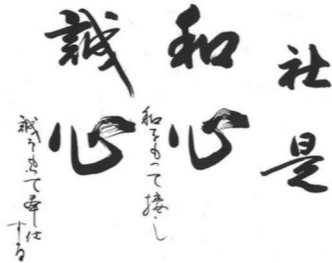 社是
和心
和をもって接し
誠心
誠をもって奉仕
する